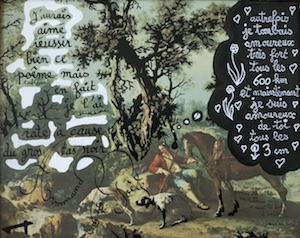 J'aurais
aimé
réussir
bien ce
poème mais
en fait
je l'ai
raté à cause
du gros
autrefois
je tombais
amoureux
très fort
tous les
600 km
et maintenant
je suis
amoureux
de toi
tous les
3 cm